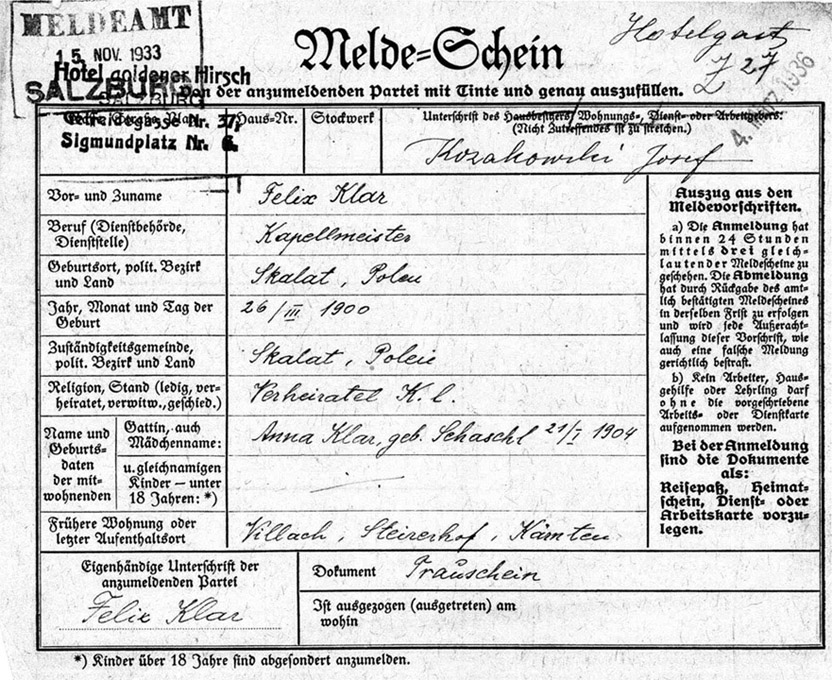 MELDEAMT
15. NOV. 1933
SALZBURG
Hotel goldener Hirsch
SALZBURG
Getreidegasse Nr. 37,
Sigmundplatz Nr. 6.
Melde=Schein
Hotelgast
Z 27
4. März 1936
Von der anzumeldenden Partei mit Tinte und genau auszufüllen.
Haus-Nr.
Stockwerk
Unterschrift des Hausbesitzers, Wohnungs-, Dienst- oder Arbeitgebers:
(Nicht Zutreffendes ist zu streichen.)
Kozakowski Josef
Vor- und Zuname
Felix Klar
Beruf (Dienstbehörde,
Dienststelle)
Kapellmeister
Geburtsort, polit. Bezirk
und Land
Skalat, Polen
Jahr, Monat und Tag der
Geburt
26/III 1900
Zuständigkeitsgemeinde,
polit. Bezirk und Land
Skalat, Polen
Religion, Stand (ledig, ver-
heiratet, verwitw., geschied.)
Verheiratet K. l.
Name und
Geburts-
daten
der mit-
wohnenden
Gattin, auch
Mädchenname:
Anna Klar, geb. Schaschl 21/I 1904
u. gleichnamigen
Kinder – unter
18 Jahren: *)
Frühere Wohnung oder
letzter Aufenthaltsort
Villach, Steirerhof, Kärnten
Auszug aus den
Meldevorschriften.
a) Die Anmeldung hat
binnen 24 Stunden
mittels drei gleich-
lautender Meldescheine zu
geschehen. Die Abmeldung
hat durch Rückgabe des amt-
lich bestätigten Meldescheines
in derselben Frist zu erfolgen
und wird jede Außeracht-
lassung dieser Vorschrift, wie
auch eine falsche Meldung
gerichtlich bestraft.
b) Kein Arbeiter, Haus-
gehilfe oder Lehrling darf
ohne die vorgeschriebene
Arbeits- oder Dienstkarte
aufgenommen werden.
Bei der Anmeldung
sind die Dokumente
als:
Reisepaß, Heimat-
schein, Dienst- oder
Arbeitskarte vorzu-
legen.
Eigenhändige Unterschrift der
anzumeldenden Partei
Felix Klar
Dokument Trauschein
Ist ausgezogen (ausgetreten) am
wohin
*) Kinder über 18 Jahre sind abgesondert anzumelden.